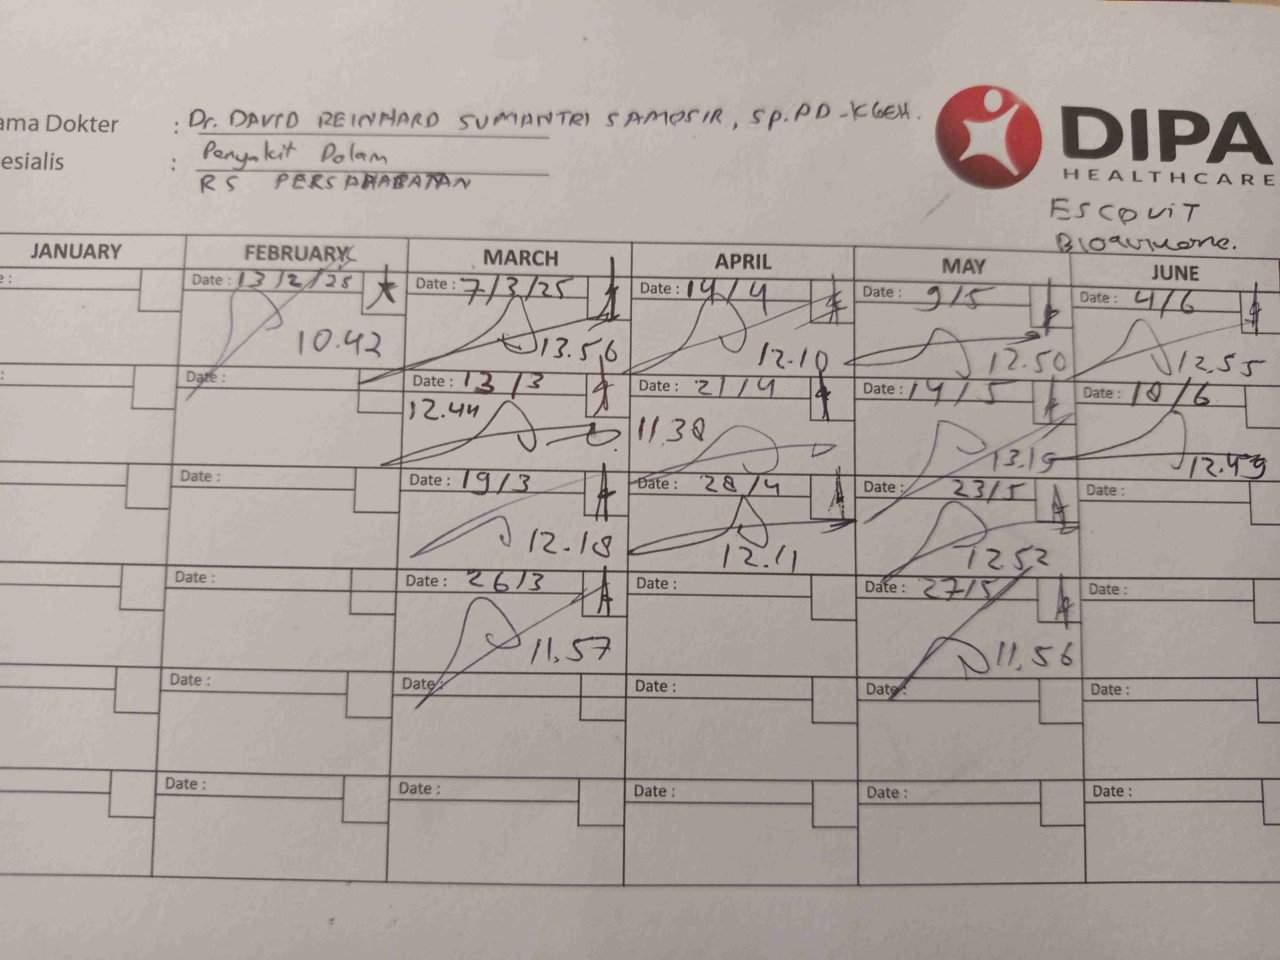 ama Dokter : Dr. DAVID REINHARD SUMANTRI SAMOSIR, Sp.PD-KGEH.
esialis : Penyakit Dalam
RS PERSAHABATAN
DIPA
HEALTHCARE
ESCOVIT
JANUARY FEBRUARY MARCH APRIL MAY JUNE
e : Date : 13/2/25 Date : 7/3/25 Date : 14/4 Date : 9/5 Date : 4/6
10.42 13.56 12.10 12.50 12.55
: Date : Date : 13/3 Date : 21/4 Date : 14/5 Date : 10/6
12.44 11.38 13.19 12.49
Date : Date : 19/3 Date : 28/4 Date : 23/5 Date :
12.18 12.11 12.52
Date : Date : 26/3 Date : Date : 27/5 Date :
11.57 11.56
Date : Date : Date : Date : Date :
Date : Date : Date : Date : Date :